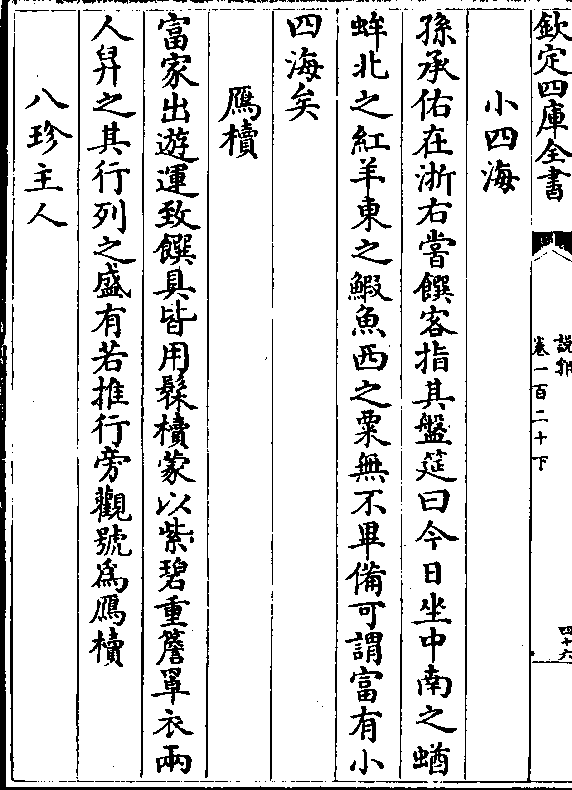 欽定四庫全書
說郛
卷一百二十下
四十六
小四海
孫承佑在浙右嘗饌客指其盤筵曰今日坐中南之蝤
蛑北之紅羊東之鰕魚西之粟無不畢備可謂富有小
四海矣
鴈櫝
富家出遊運致饌具皆用髹櫝蒙以紫碧重簷罩衣兩
人舁之其行列之盛有若推行旁觀號為鴈櫝
八珍主人